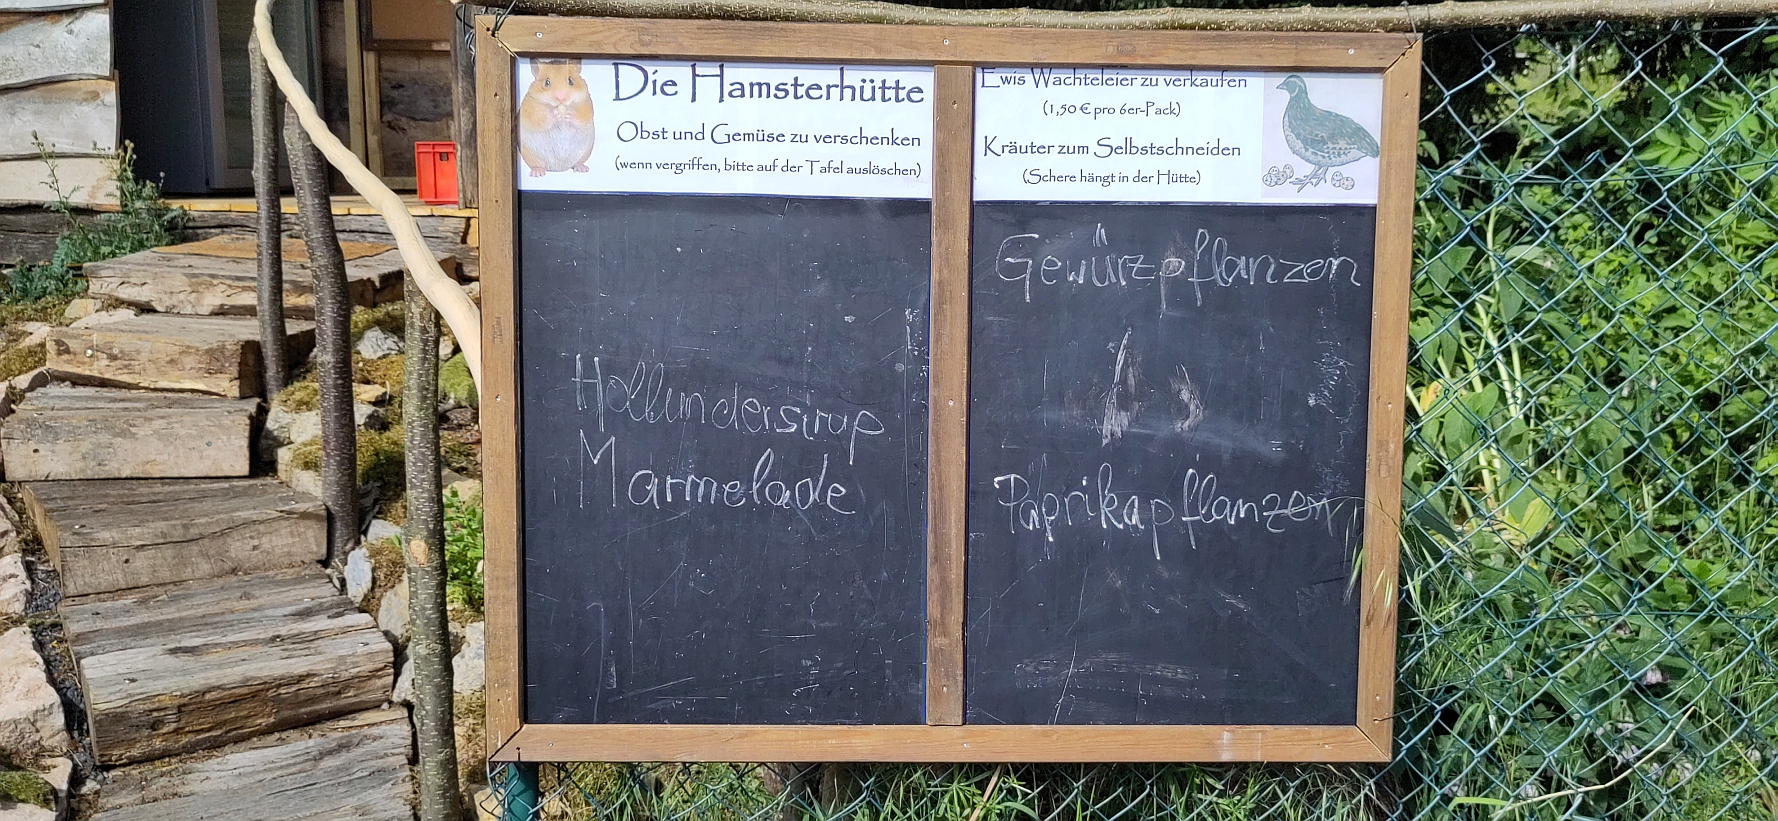 Die Hamsterhütte
Obst und Gemüse zu verschenken
(wenn vergriffen, bitte auf der Tafel auslöschen)
Hollundersirup
Marmelade
Ewis Wachteleier zu verkaufen
(1,50 € pro 6er-Pack)
Kräuter zum Selbstschneiden
(Schere hängt in der Hütte)
Gewürzpflanzen
Paprikapflanzen